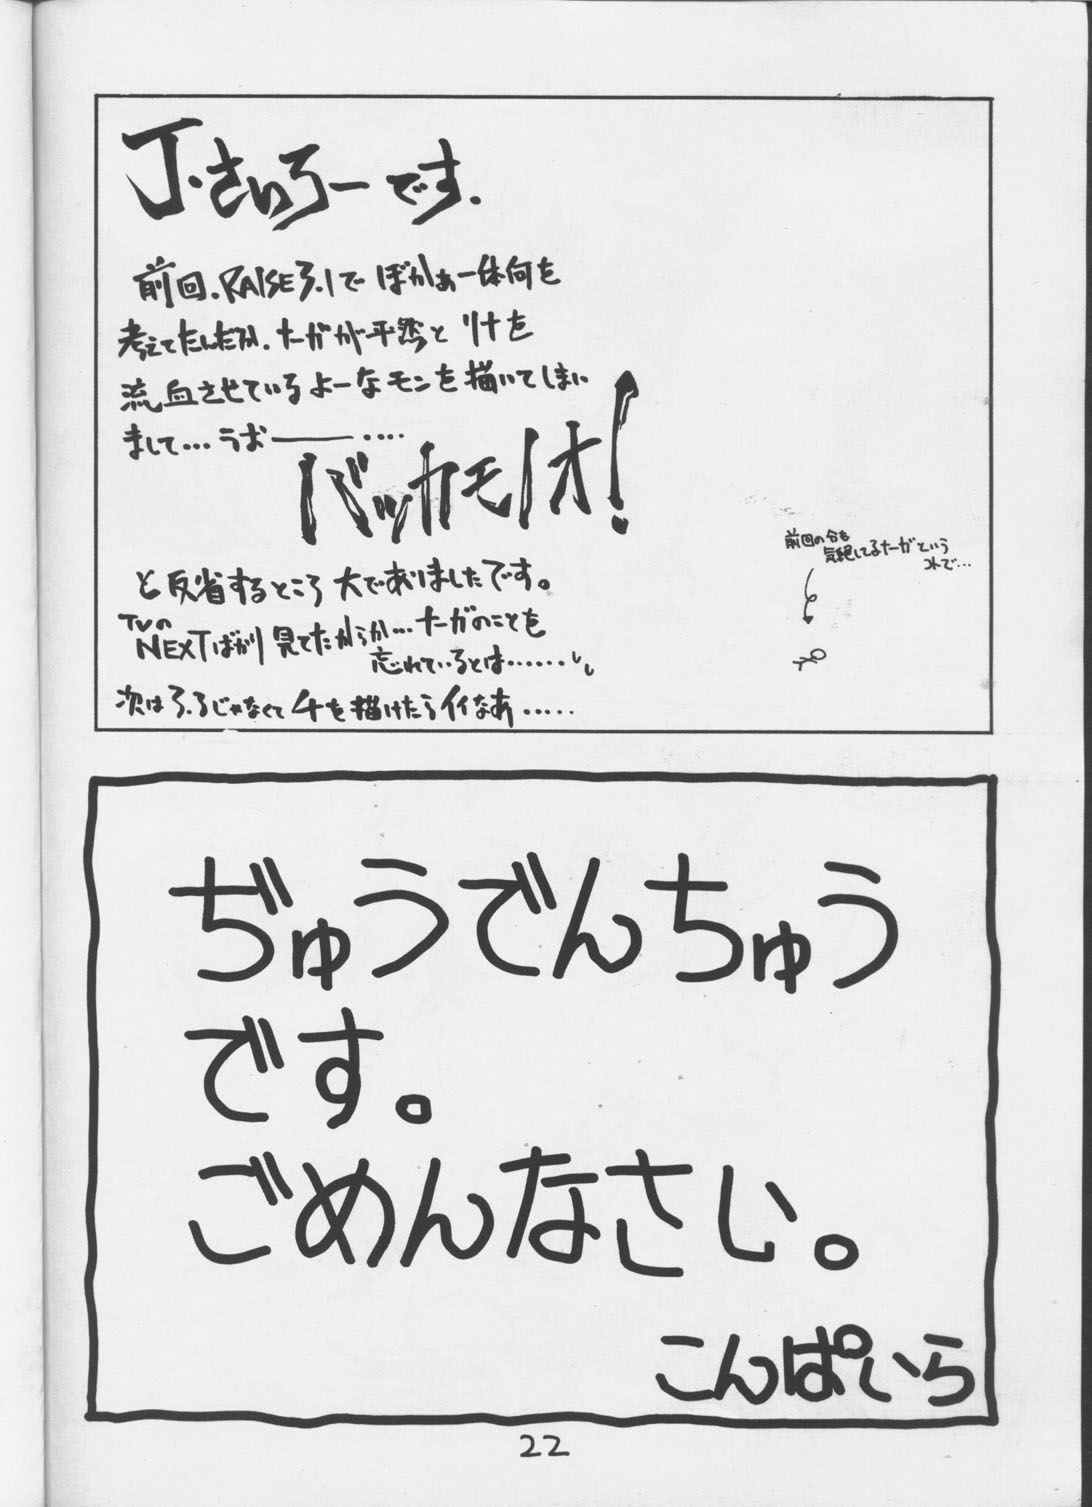 J・さいろーです.
前回.RAISE3.1でぼかぁ一体何を
考えてたんだか.ナーガが平然とリナを
流血させているよーなモンを描いてしまい
まして…うおー――‥‥
バッカモノオ!
と反省するところ大でありましたです。
TVの
NEXTばかり見てたからか…ナーガのことを
忘れているとは……
次は3.3じゃなくて4を描けたらイイなあ……
前回の分も
気絶してるナーガという
コトで…
ぢゅうでんちゅう
です。
ごめんなさい。
こんぱいら
22